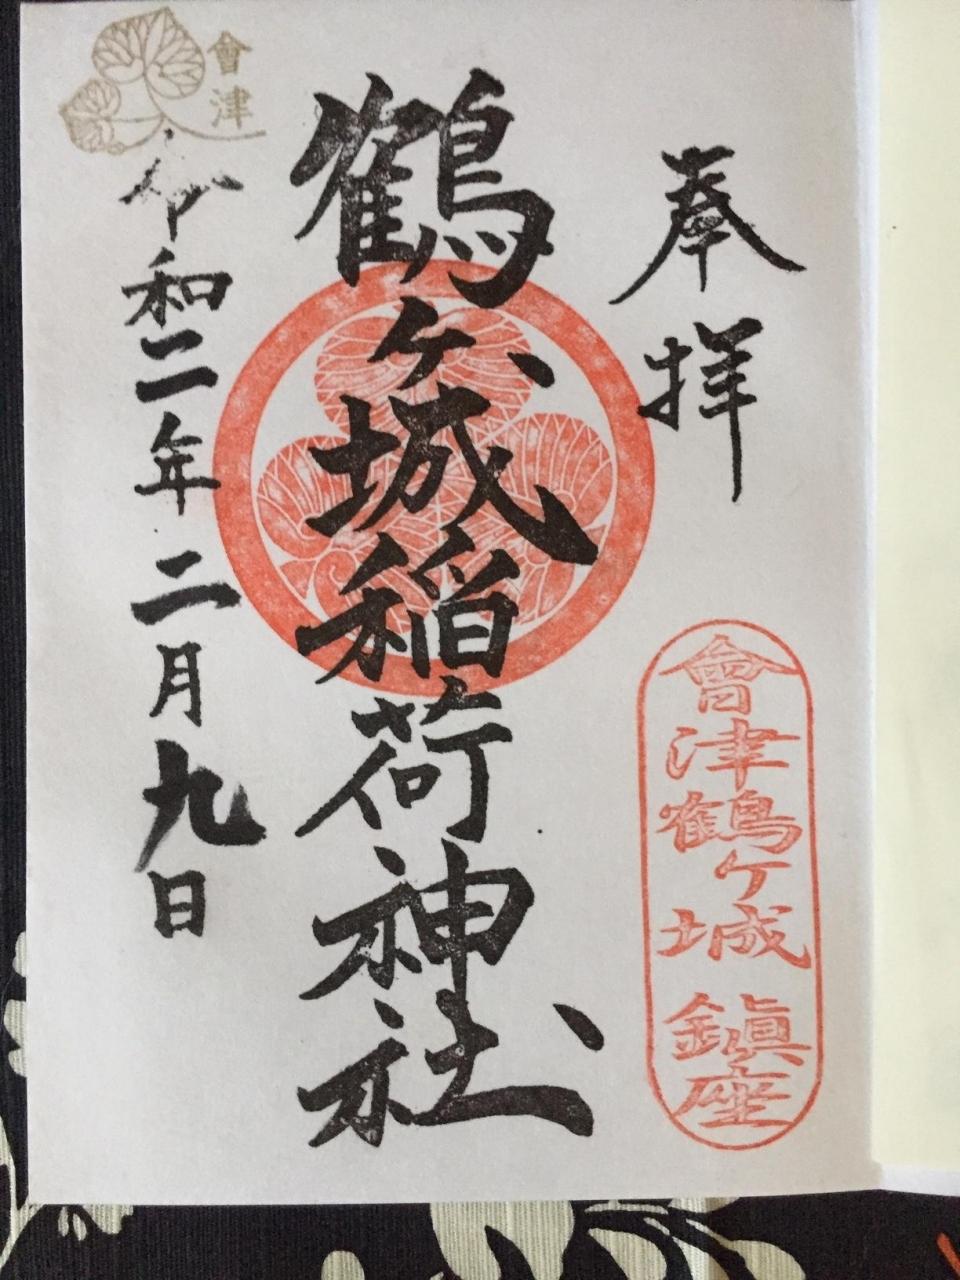 奉拝
會津鶴ケ城 鎮座
鶴ケ城稲荷神社
會津
令和二年 二月九日